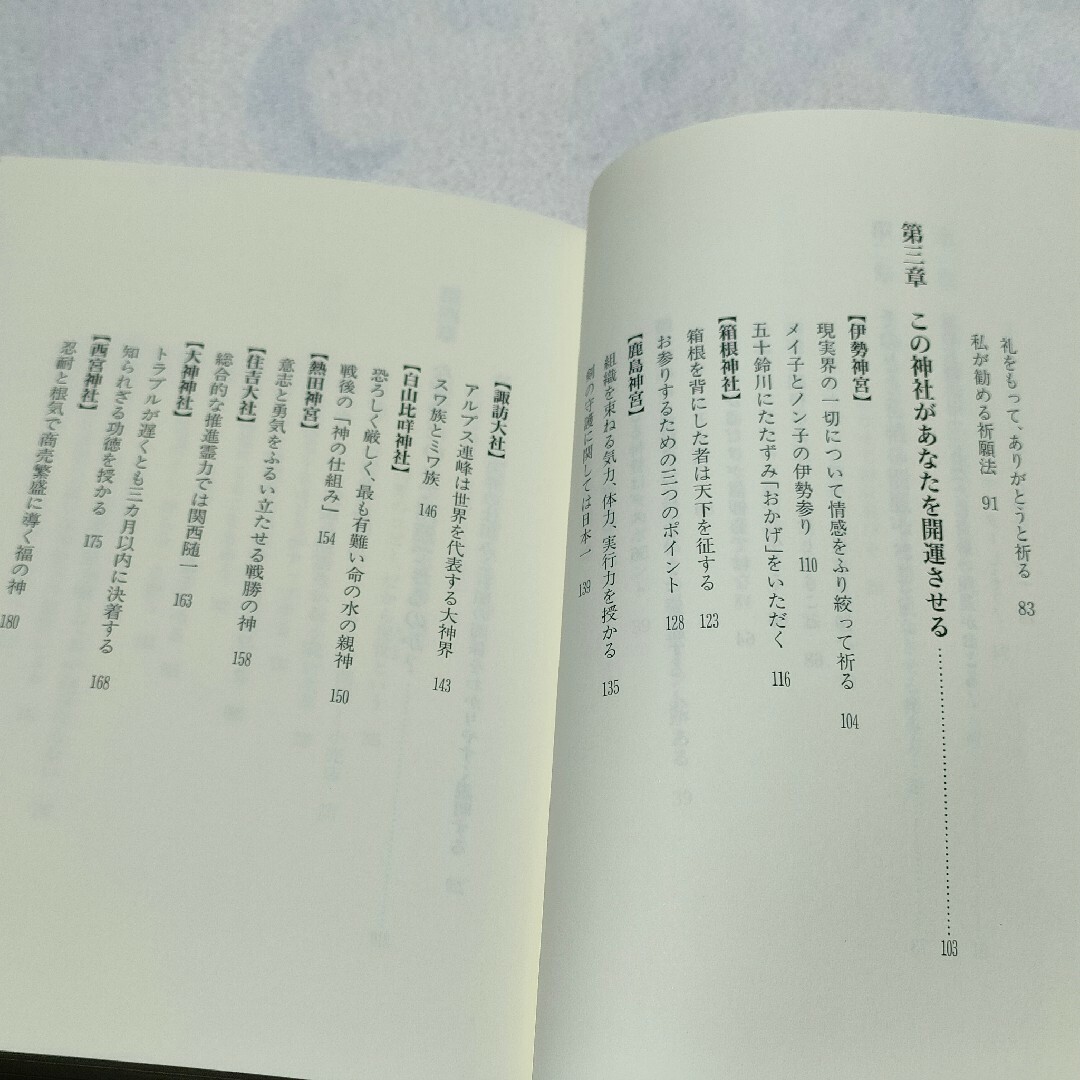 礼をもって、ありがとうと祈る 83
私が勧める祈願法 91
第三章 この神社があなたを開運させる……………………103
【伊勢神宮】
現実界の一切について情感をふり絞って祈る 104
メイ子とノン子の伊勢参り 110
五十鈴川にたたずみ「おかげ」をいただく 116
【箱根神社】
箱根を背にした者は天下を征する 123
お参りするための三つのポイント 128
【鹿島神宮】
組織を束ねる気力、体力、実行力を授かる 135
剣の守護に関しては日本一 139
【諏訪大社】
アルプス連峰は世界を代表する大神界 143
スワ族とミワ族 146
【白山比咩神社】
恐ろしく厳しく、最も有難い命の水の親神 150
戦後の「神の仕組み」 154
【熱田神宮】
意志と勇気をふるい立たせる戦勝の神 158
【住吉大社】
総合的な推進霊力では関西随一 163
【大神神社】
トラブルが遅くとも三カ月以内に決着する 168
知られざる功徳を授かる 175
【西宮神社】
忍耐と根気で商売繁盛に導く福の神 180